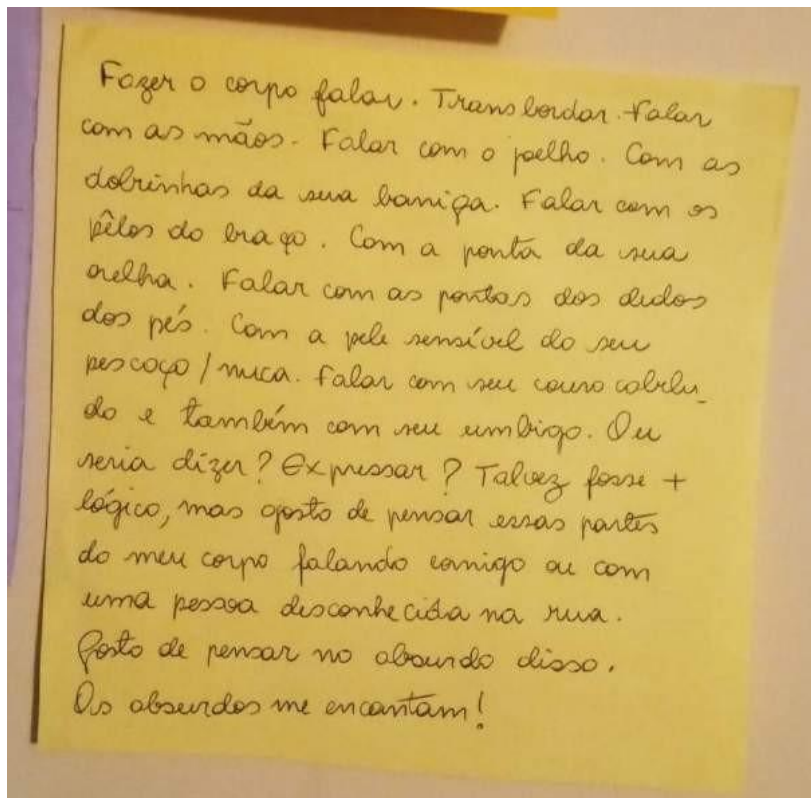 Fazer o corpo falar. Transbordar. Falar
com as mãos. Falar com o joelho. Com as
dobrinhas da sua barriga. Falar com os
pêlos do braço. Com a ponta da sua
orelha. Falar com as pontas dos dedos
dos pés. Com a pele sensível do seu
pescoço / nuca. Falar com seu couro cabelu_
do e também com seu umbigo. Ou
seria dizer? Expressar? Talvez fosse +
lógico, mas gosto de pensar essas partes
do meu corpo falando comigo ou com
uma pessoa desconhecida na rua.
Gosto de pensar no absurdo disso.
Os absurdos me encantam!